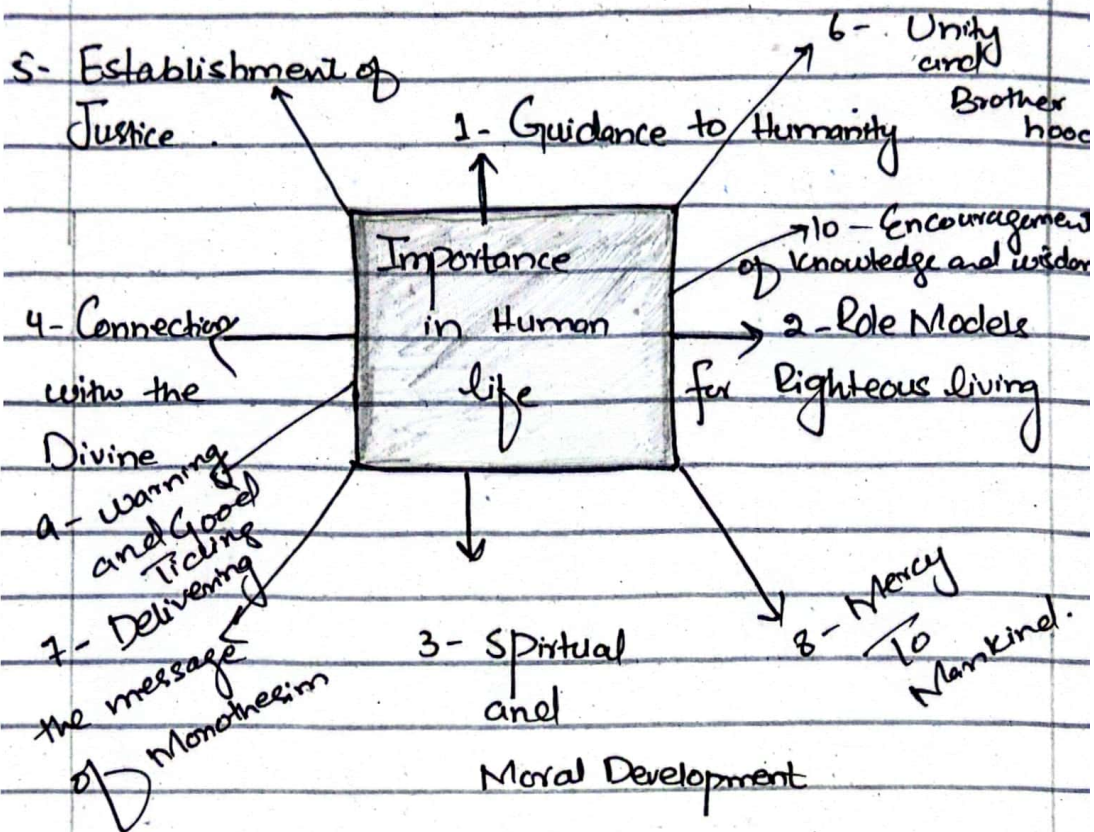 5- Establishment of
Justice.
1- Guidance to Humanity
6- Unity
and
Brother
hood
Importance
in Human
life
10- Encouragement
of knowledge and wisdom
4- Connection
with the
Divine
2- Role Models
for Righteous living
9- warning
and Good
Tiding
7- Delivering
the message
of Monothesim
3- Spirtual
and
Moral Development
8- Mercy
To
Mankind.